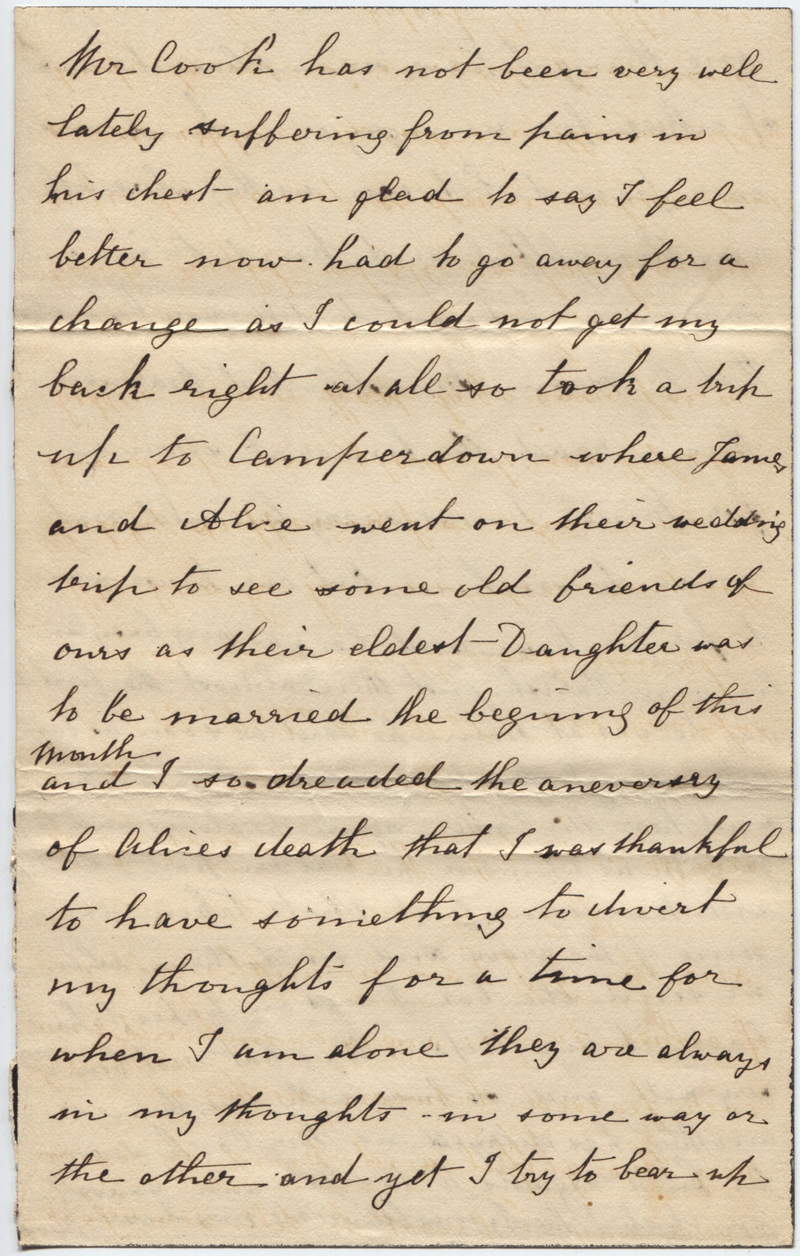 Mr Cook has not been very well
lately suffering from pains in
his chest am glad to say I feel
better now. had to go away for a
change as I could not get my
back right at all so took a trip
up to Camperdown where James
and Alice went on their wedding
trip to see some old friends of
ours as their eldest Daughter was
to be married the begining of this
month
and I so dreaded the aneversry
of Alices death that I was thankful
to have something to divert
my thoughts for a time for
when I am alone they are always
in my thoughts in some way or
the other and yet I try to bear up